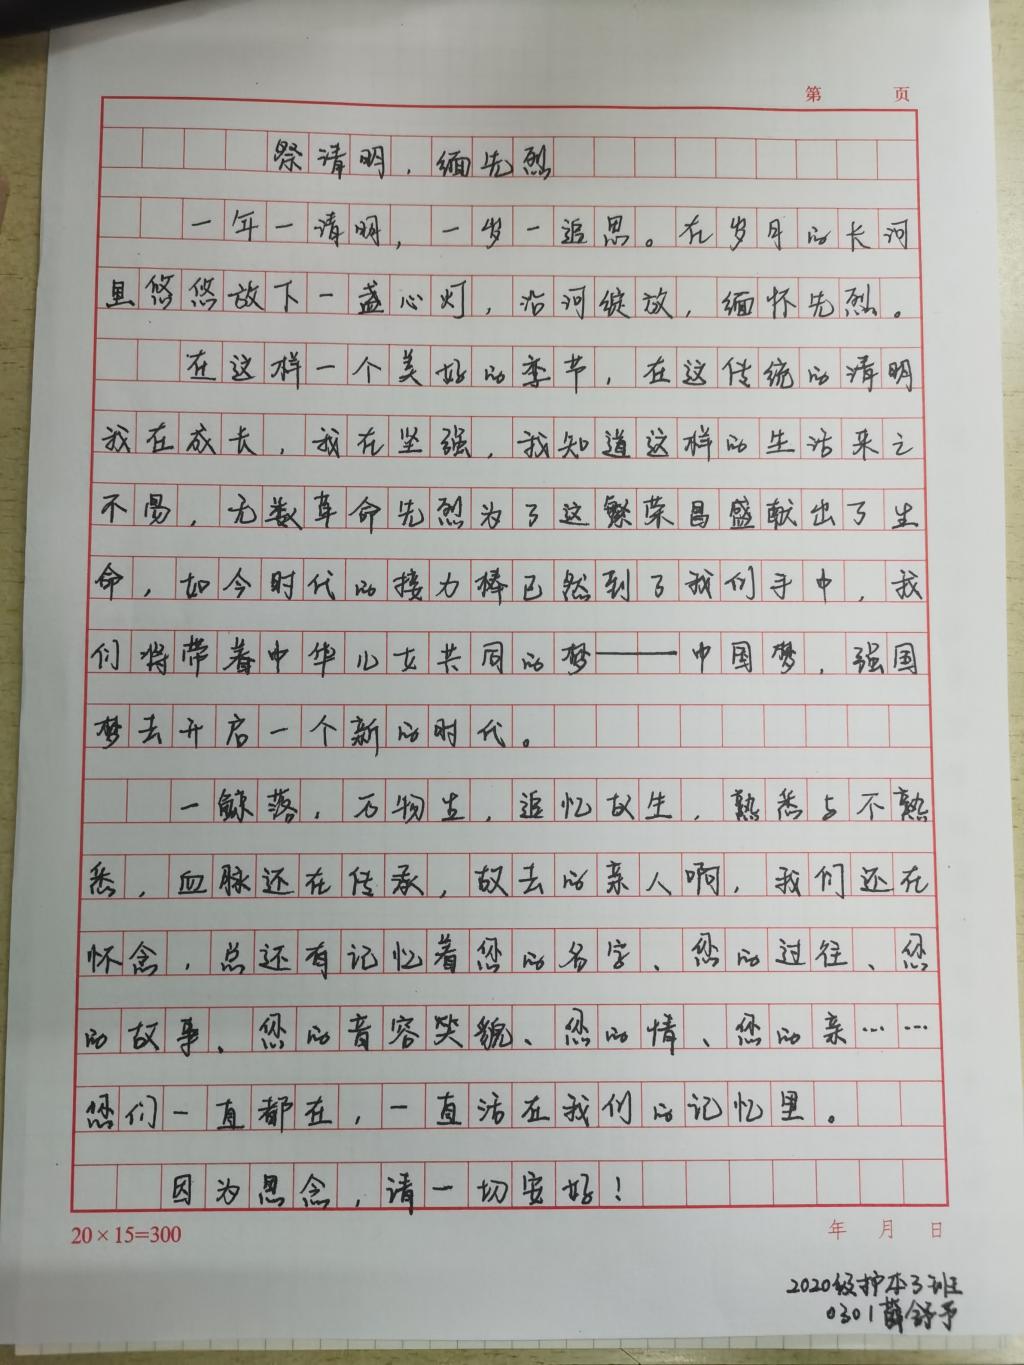 第 页
祭清明，缅先烈
一年一清明，一岁一追思。在岁月的长河
里悠悠放下一盏心灯，沿河绽放，缅怀先烈。
在这样一个美好的季节，在这传统的清明
我在成长，我在坚强，我知道这样的生活来之
不易，无数革命先烈为了这繁荣昌盛献出了生
命，如今时代的接力棒已然到了我们手中，我
们将带着中华儿女共同的梦——中国梦，强国
梦去开启一个新的时代。
一鲸落，万物生，追忆故生，熟悉与不熟
悉，血脉还在传承，故去的亲人啊，我们还在
怀念，总还有记忆着您的名字、您的过往、您
的故事、您的音容笑貌、您的情、您的亲……
您们一直都在，一直活在我们的记忆里。
因为思念，请一切安好！
20×15=300
年 月 日
2020级护本3班
0301薛舒予